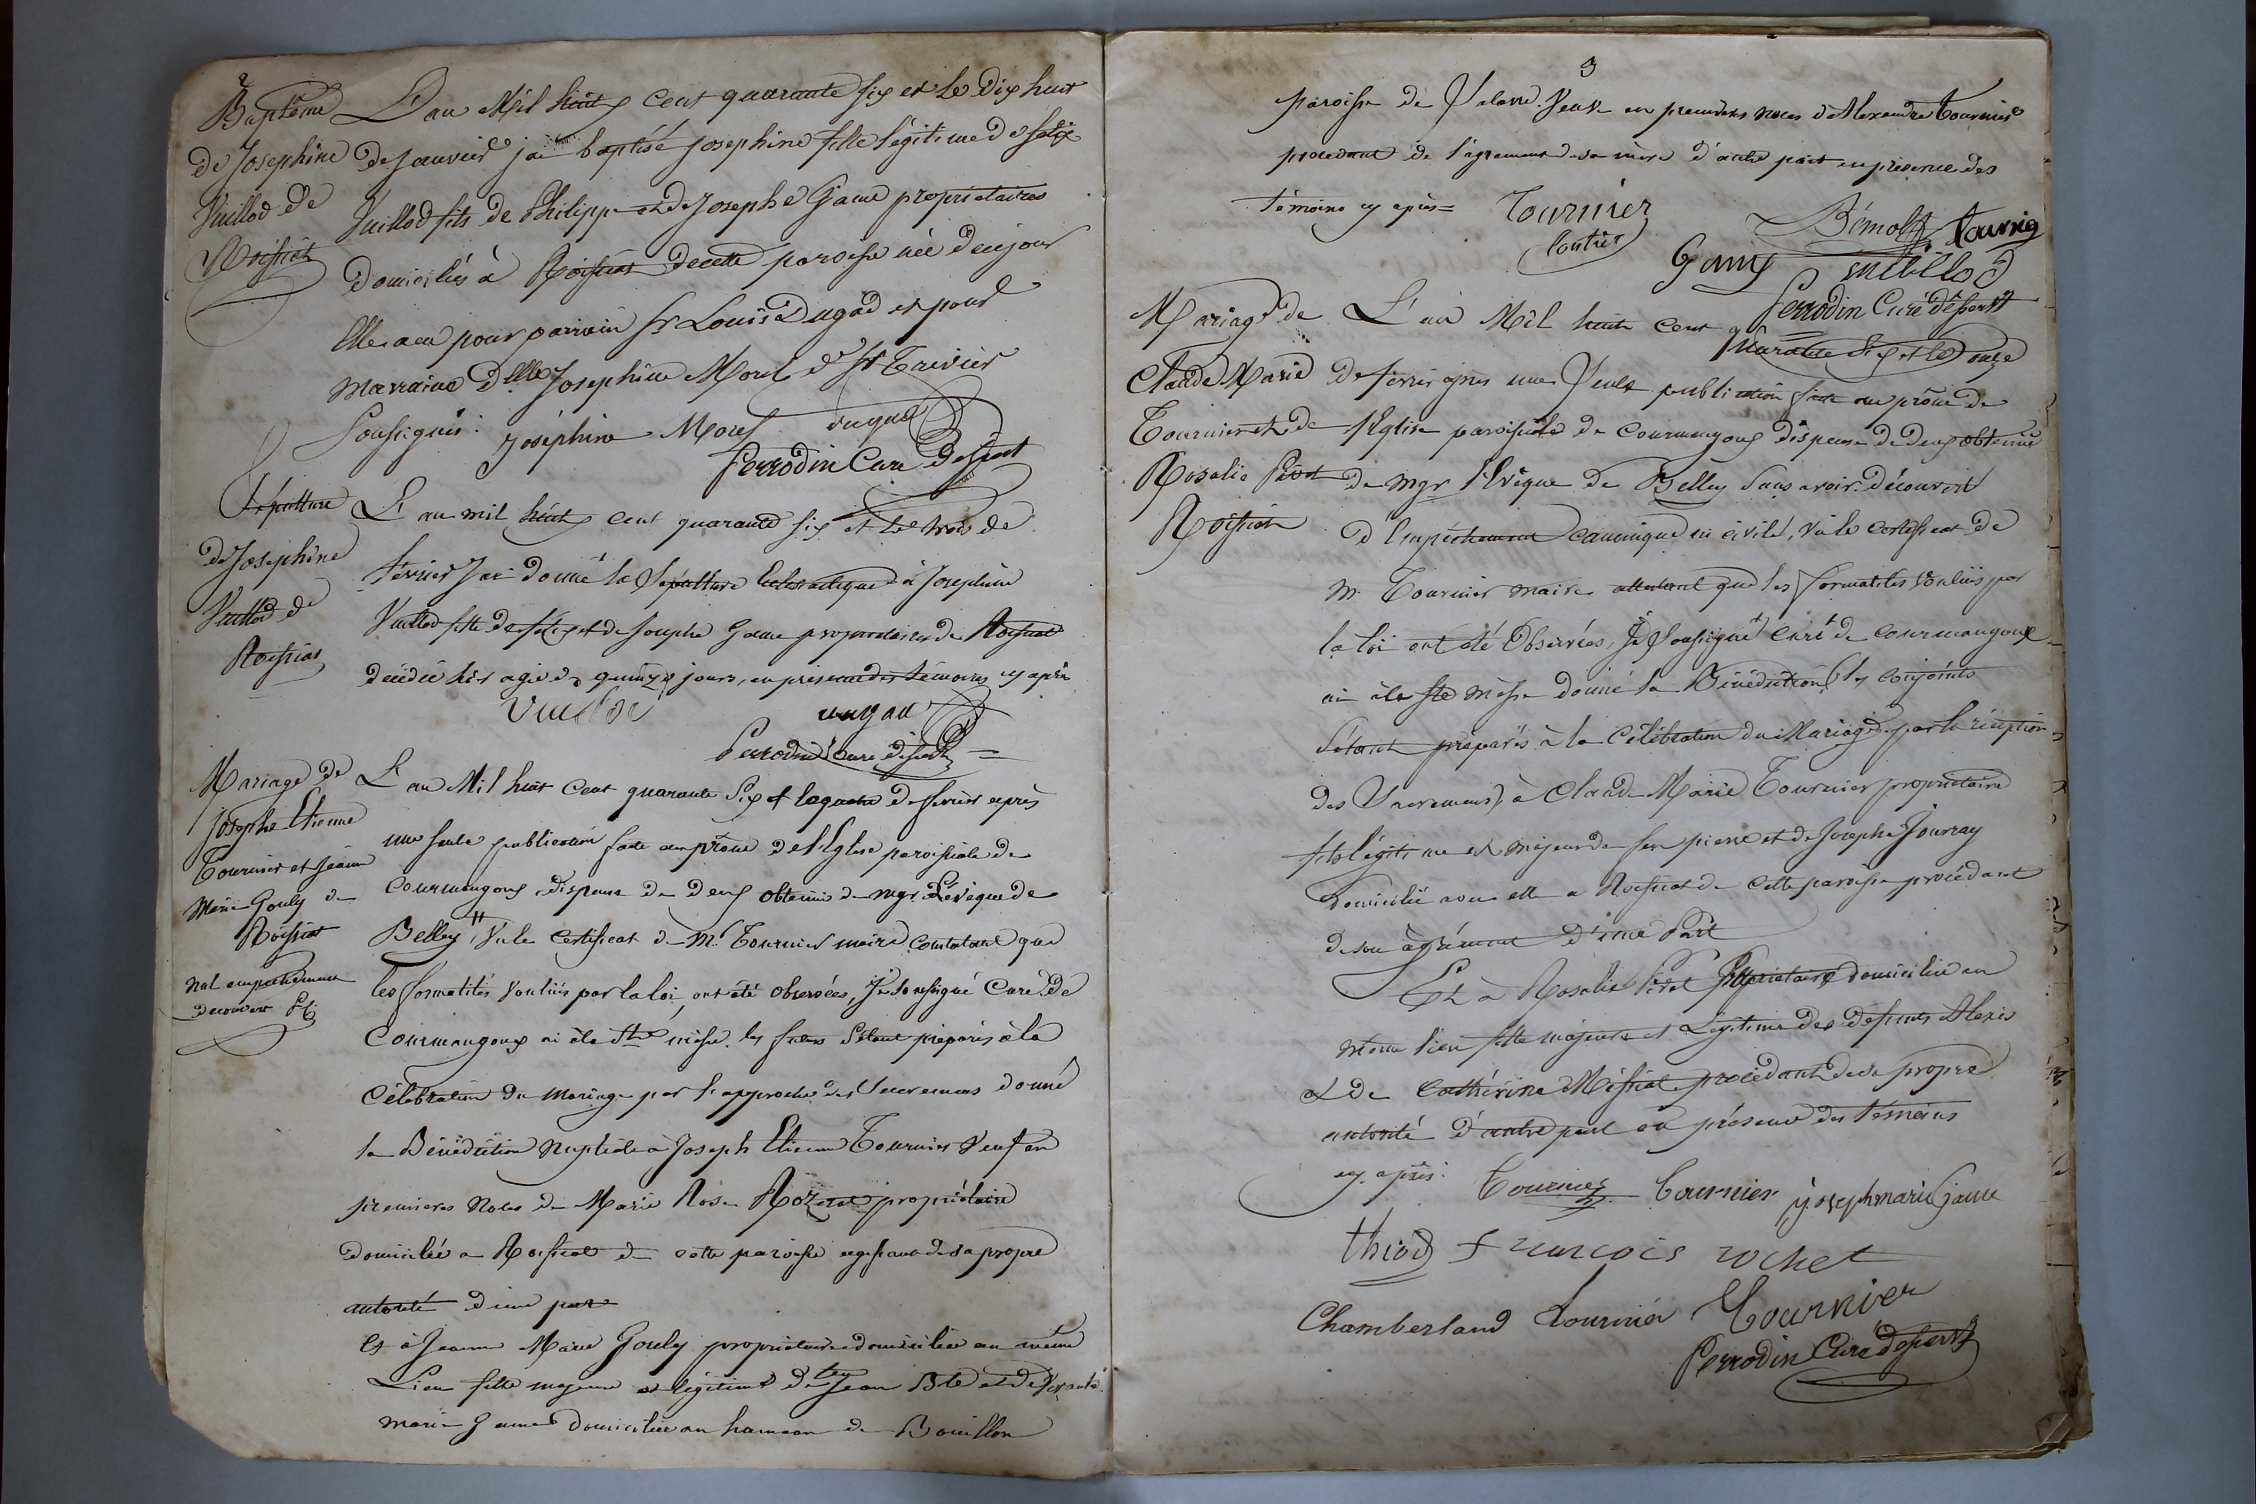 2
Baptême
de Josephine
Vuillod de
Roissiat
L'an Mil huit cent quarante six et le Dix huit
de Janvier j'ai baptisé Josephine fille légitime de felix
Vuillod fils de Philippe et de Josephe Game propriétaires
Domiciliés à Roissiat de cette paroisse née de ce jour
Elle a eu pour parrain Sr Louis Dugad et pour
marraine Delle Josephine Morel de St Trivier
Soussignés. Joséphine Morel dugad
Perrodin Curé Dessert
Sepulture
de Josephine
Vuillod de
Roissiat
L'an mil huit cent quarante six et le trois de
février J'ai donné la Sépulture Eclesiastique à Josephine
Vuillod fille de felix et de Josephe Game propriétaires de Roissiat
décédée hier agée de quinze jours, en présence des témoins cy après
Vuillod dugad
Perrodin Curé dessert
Mariage de
Joseph Etienne
Tournier et Jeanne
Marie Gouly de
Roissiat
nul empechement
decouvert
L'an Mil huit cent quarante Six et le quatre de fevrier après
une seule publication faite au prône de l'Eglise paroissiale de
Courmangoux, dispense de deux obtenue de mgr L'évêque de
Belley, Vu le certificat de Mr. Tournier maire constatant que
les formalités voulues par la loi, ont été observées, Je soussigné Curé de
Courmangoux ai à la Ste messe, les futurs s'étant préparés à la
Célébration du mariage par l'approche des Sacremens donné
la Bénédiction Nuptiale à Joseph Etienne Tournier Veuf en
premieres Noces de Marie Rose Rozet propriétaire
Domicilié à Roissiat de cette paroisse agissant de sa propre
autorité d'une part
Et à Jeanne Marie Gouly propriétaire domiciliée au même
Lieu fille majeure et légitime de feu Jean Bte et de
Marie Game domiciliée au hameau de Bouillon
3
paroisse de Veuve en premières noces d'Alexandre Tournier
procedant de l'agrement de sa mère d'autre part en présence des
témoins cy après = Tournier Bémol Tournier
Game Vuillod
Perrodin Curé dessert
Mariage de
Claude Marie
Tournier et de
Rosalie Pivot
Roissiat
L'an Mil huit cent quarante six et le onze
de fevrier après une Seule publication faite au prône de
l'Eglise paroissiale de Courmangoux dispense de deux obtenue
de mgr l'Evêque de Belley Sans avoir découvert
d'Empêchement canonique ni civile, Vu le certificat de
Mr. Tournier maire attestant que les formalités voulues par
la loi ont été Observées, Je Soussigné Curé de Courmangoux
ai à la Ste Messe donné la Bénédiction (les conjoints
s'étant préparés à la Célébration du Mariage par la réception
des Sacremens) à Claude Marie Tournier propriétaire
fils légitime et majeur de feu pierre et de Josephe
Domicilié avec elle à Roissiat de cette paroisse procédant
de son agrément d'une Part
Et à Rosalie Pivot Propriétaire domiciliée au
même lieu fille majeure et Légitime des défunts Alexis
et de Cathérine Missiat procédant de sa propre
autorité d'autre part en présence des témoins
cy après. Tournier Tournier joseph marie Game
thiod francois rochet
Chamberland Tournier Tournier
Perrodin Curé dessert